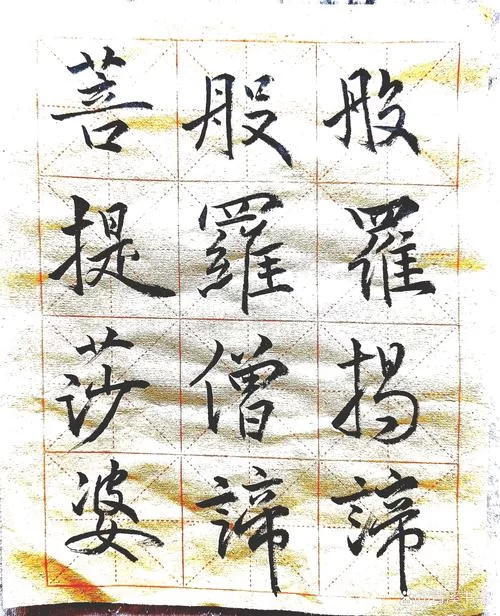 般羅揭諦
般羅僧諦
菩提莎婆